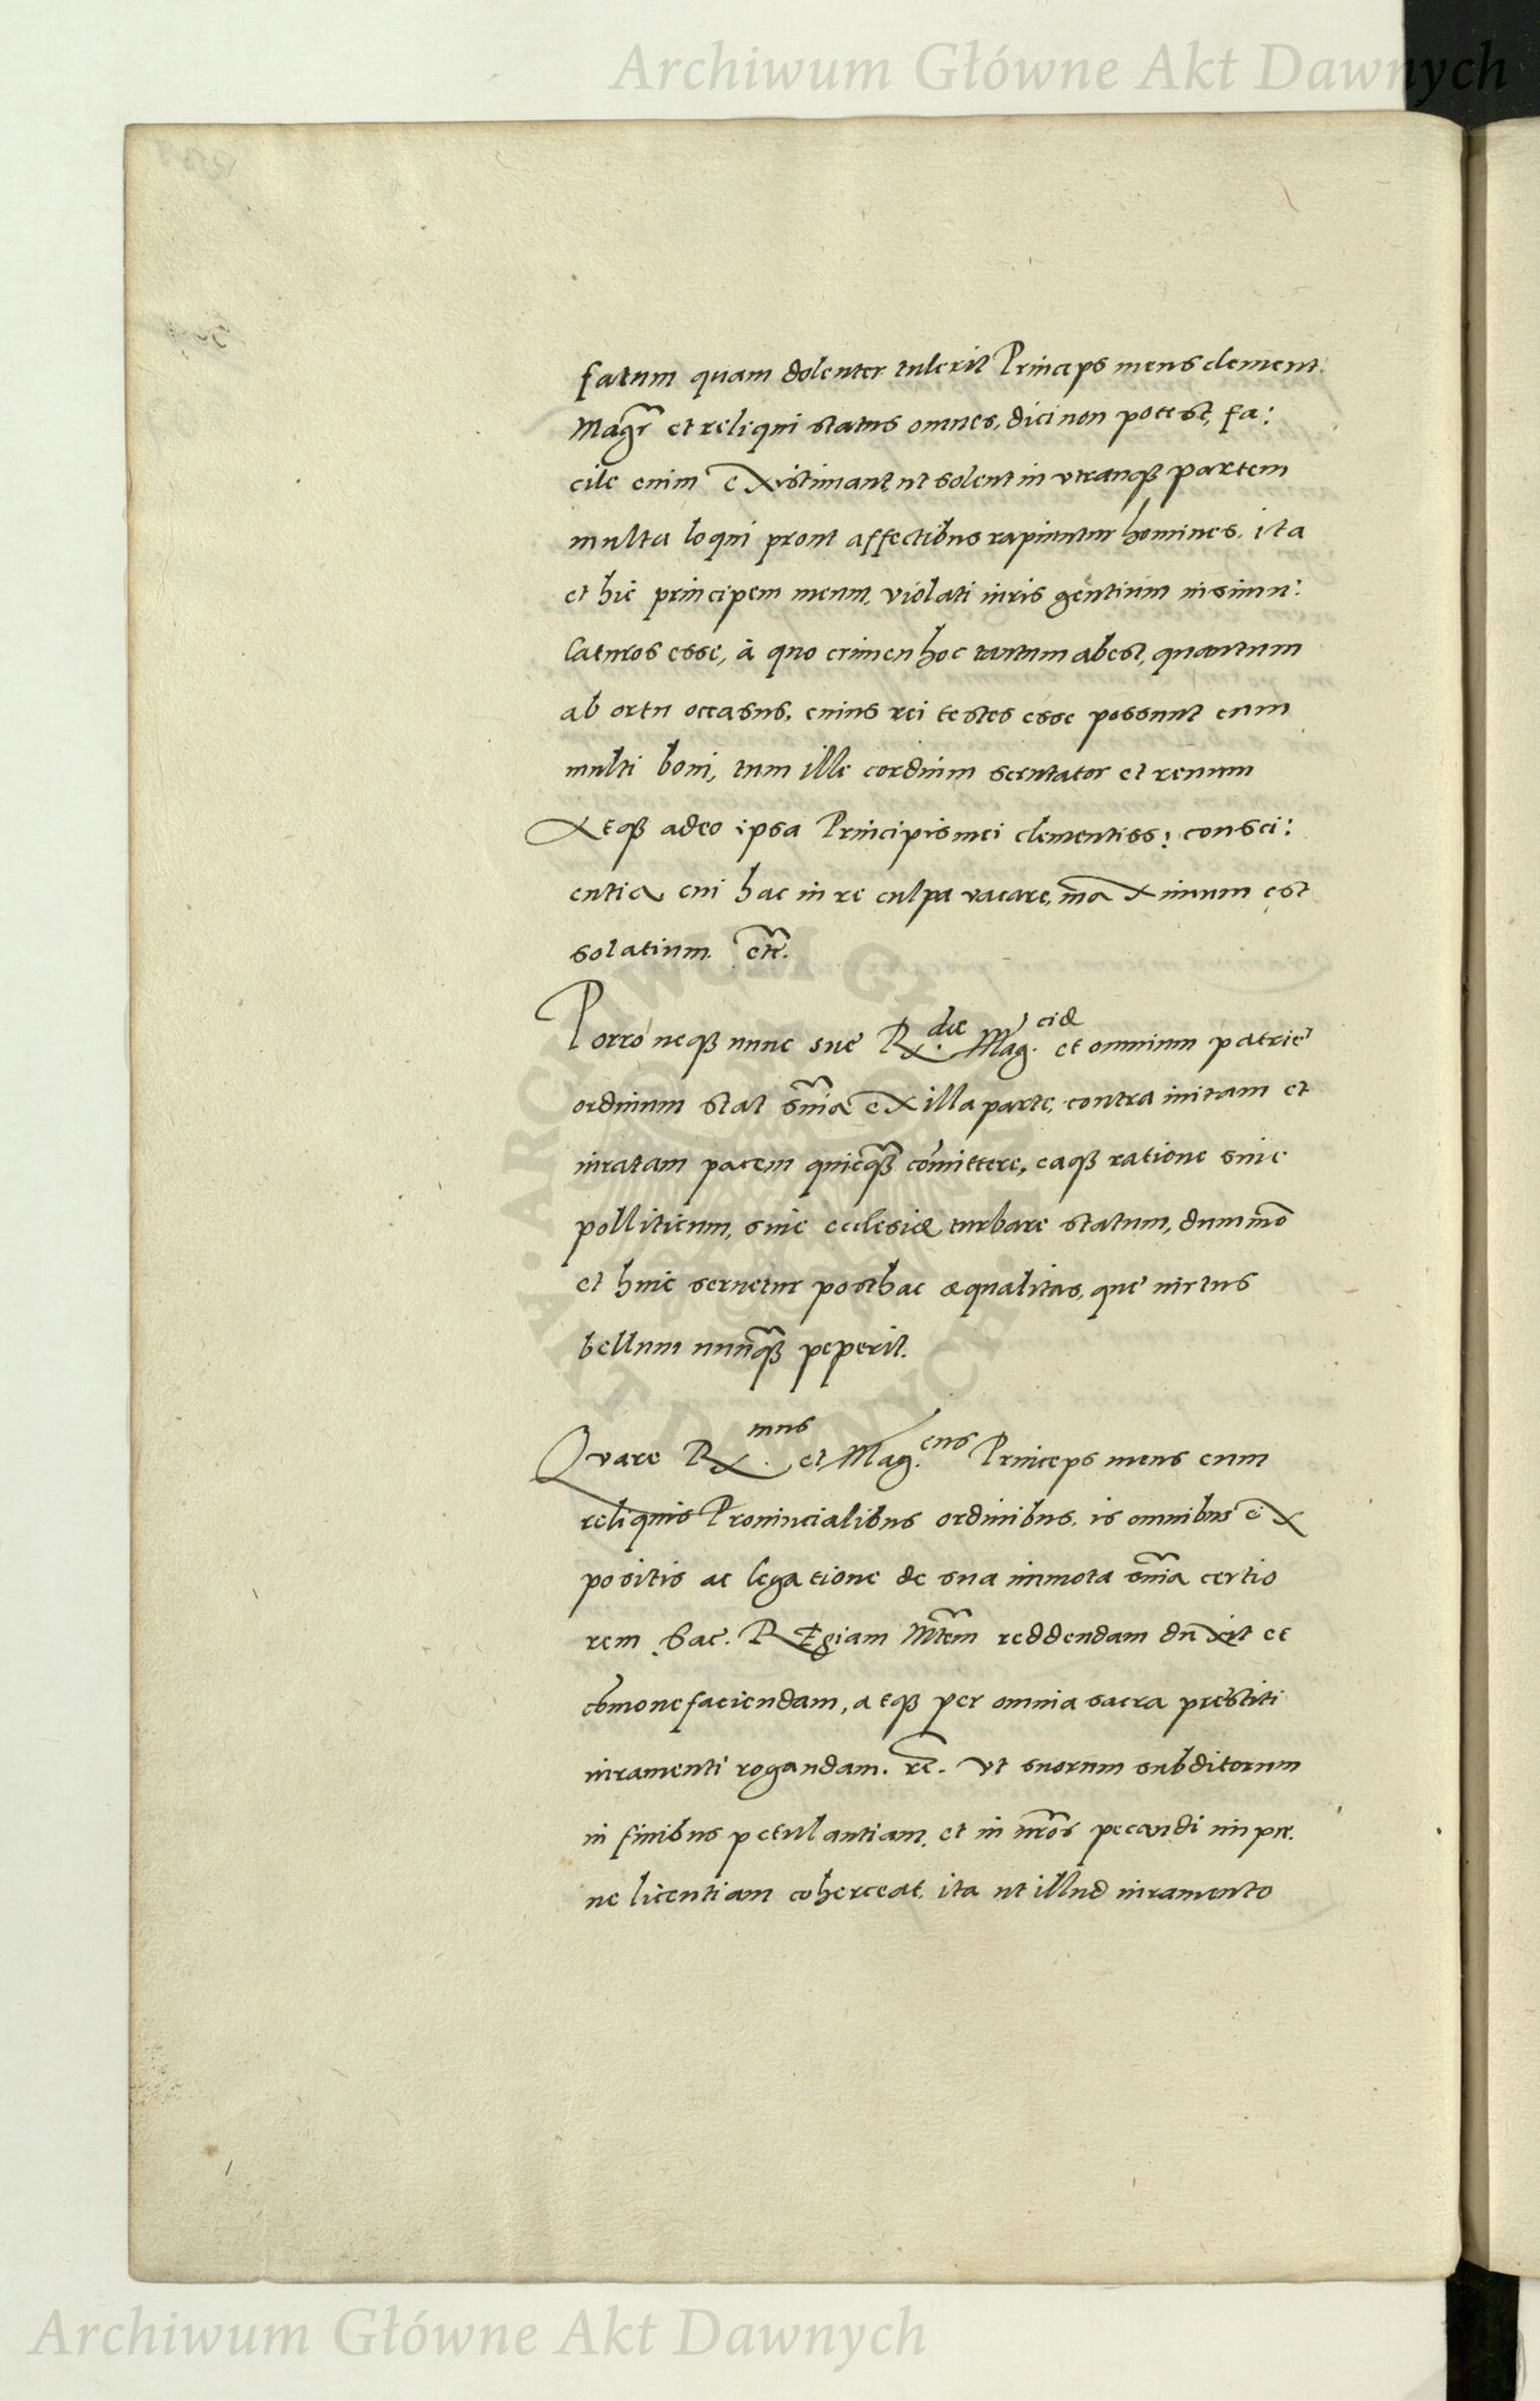 Archiwum Główne Akt Dawnych
fatum quam dolenter tulerit Princeps meus clement:
Magr̃ et reliqui status omnes, dici non potest, fa:
cile enim existimant, ut solent in utranqȝ partem
multa loqui prout affectibus rapiuntur homines, ita
et hic principem meum, violati iuris gentium insimu:
laturos esse, à quo crimen hoc tantum abest, quantum
ab ortu occasus, cuius rei testes esse possunt cum
multi boni, tum ille cordium scrutator et renum
Atqȝ adeo ipsa Principis mei clementiss: consci:
entia cui hac in re culpa vacare, maximum est
solatium. etc̃.
Porro neqȝ nunc suę R.dæ Mag.ciæ et omnium patrię
ordinum stat sñia ex illa parte, contra initam et
iuratam pacem quicqȝ̃ cõmittere, eaqȝ ratione siue
polliticum, siue ecclesiæ turbare statum, dummõ
et huic seruetur posthac æqualitas, quę uirtus
bellum nunqȝ̃ peperit.
Quare R.mus et Mag.cus Princeps meus cum
reliquis Prouincialibus ordinibus, is omnibus ex
positis ac legatione de sua immota sñia certio
rem Sac. REgiam Mtem̃ reddendam duxit et
cõmonefaciendam, atqȝ per omnia sacra pręstiti
iuramenti rogandam. rc̃. Vt suorum subditorum
in finibus petulantiam, et in nr̃os peccandi impu.
ne licentiam coherceat, ita ut illud iuramento
ARCHIWUM GŁÓWNE · AKT DAWNYCH ·
Archiwum Główne Akt Dawnych